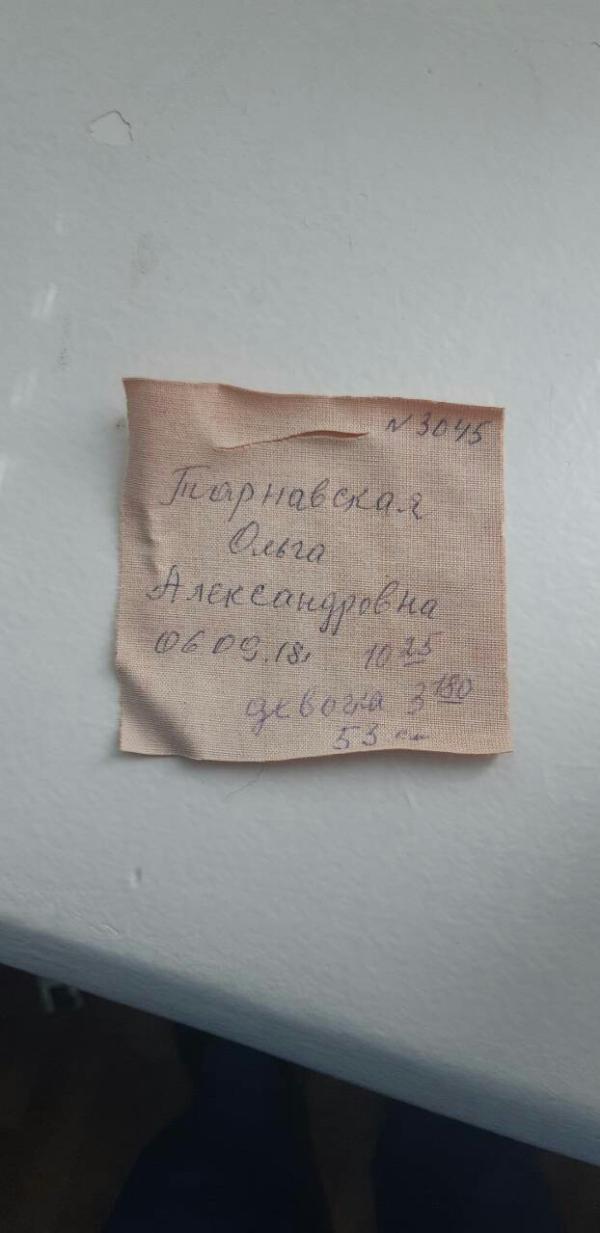 N 3045
Тарнавская
Ольга
Александровна
06 09.18г 10 25
девочка 3 180
53 см